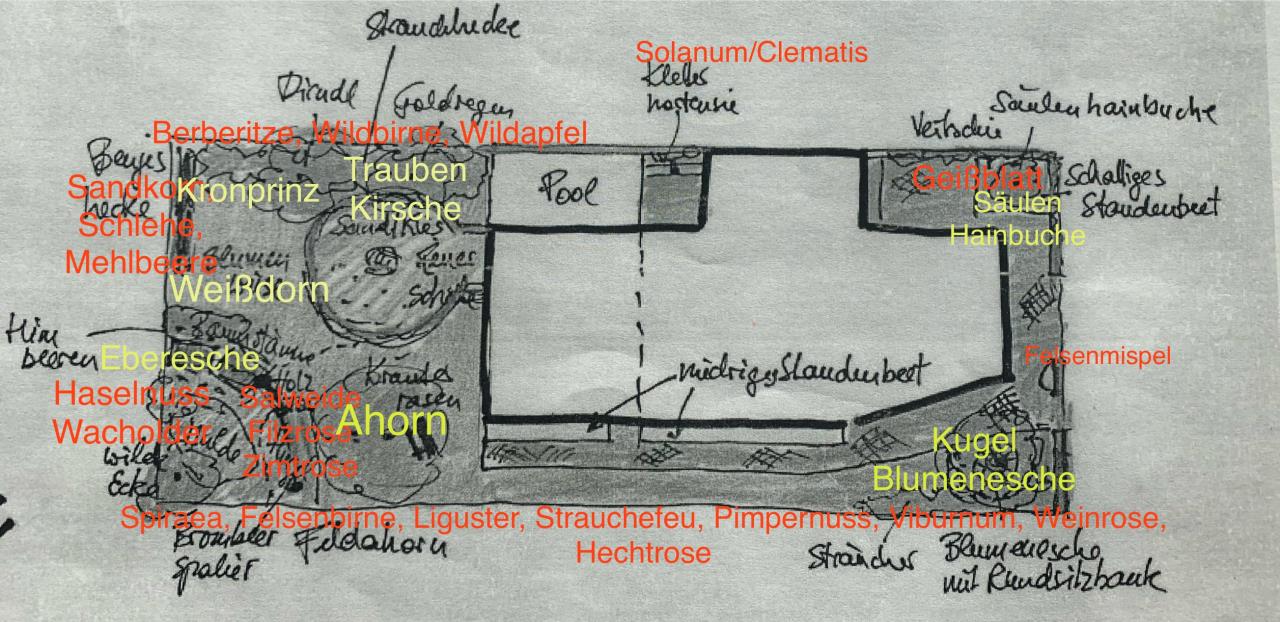 Strauchhecke
Solanum/Clematis
Kletter
hortensie
Dirndl
Goldregen
Säulenhainbuche
Berberitze, Wildbirne, Wildapfel
Benjes
hecke
Sandkorn,
Schlehe,
Mehlbeere
Kronprinz
Trauben
Kirsche
Pool
Geißblatt
Säulen
Hainbuche
Schattiges
Staudenbeet
Sand/Kies
Feuer
Blumen
Weißdorn
Him
beeren
Baumstämme
Eberesche
Holz
Kräuter
rasen
niedriges Staudenbeet
Felsenmispel
Haselnuss
Wacholder
Salweide
Filzrose
Zimtrose
Ahorn
wilde
Ecke
Kugel
Blumenesche
Spiraea, Felsenbirne, Liguster, Strauchefeu, Pimpernuss, Viburnum, Weinrose,
Hechtrose
Brombeer
spalier
Feldahorn
Sträucher
Blumenesche
mit Rundsitzbank